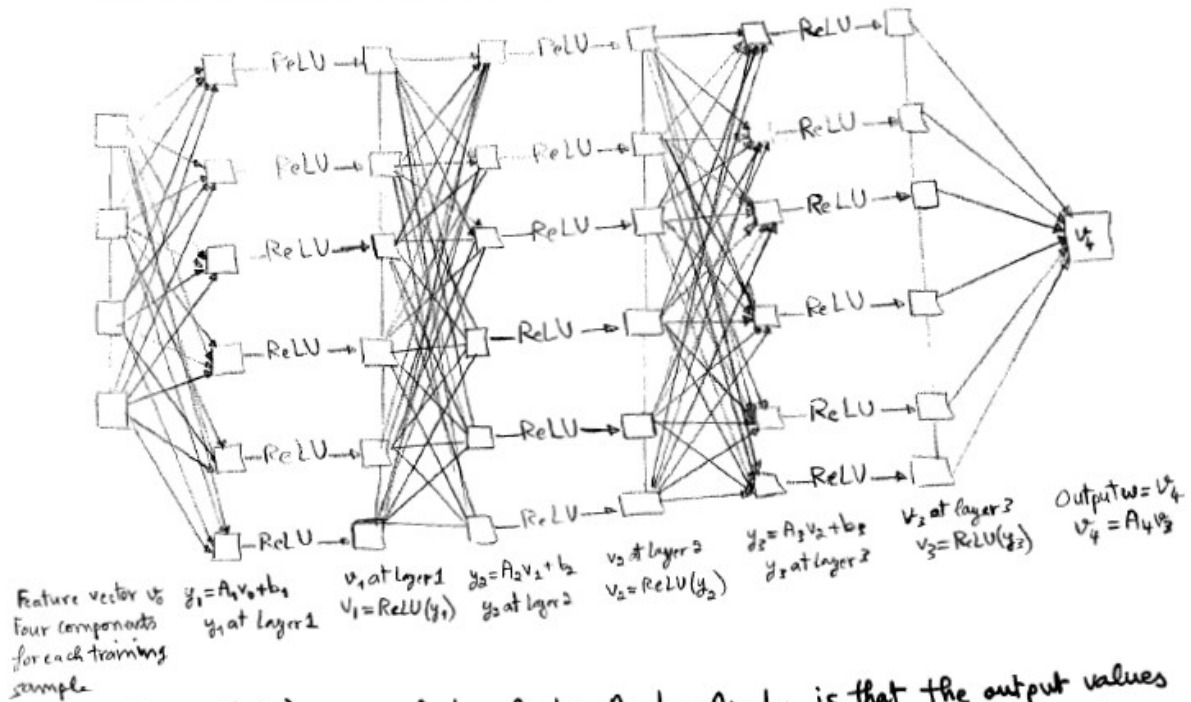 ReLU ReLU ReLU
ReLU ReLU ReLU
ReLU ReLU ReLU
v₄
ReLU ReLU ReLU
ReLU ReLU ReLU
ReLU ReLU ReLU
Feature vector v₀
Four components
for each training
sample
y₁=A₁v₀+b₁
y₁ at Layer 1
v₁ at layer 1
v₁=ReLU(y₁)
y₂=A₂v₁+b₂
y₂ at layer 2
v₂ at layer 2
v₂=ReLU(y₂)
y₃=A₃v₂+b₃
y₃ at layer 3
v₃ at layer 3
v₃=ReLU(y₃)
Output w=v₄
v₄=A₄v₃
is that the output values